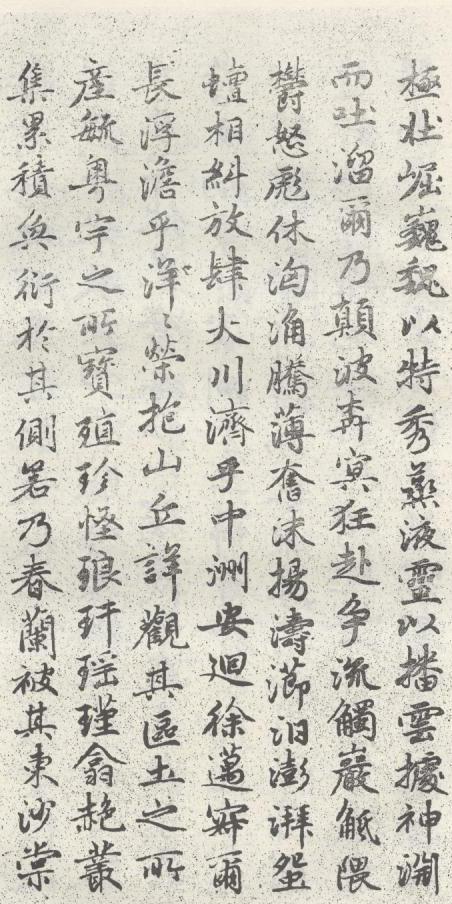 極壯崛巍巍以特秀蒸液靈以播雲據神淵
而吐溜爾乃顛波奔突狂赴爭流觸巖觝隈
欝怒彪休洶涌騰薄奮沫揚濤瀄汨澎湃蜿
蟺相糾放肆大川濟乎中洲安迴徐邁寂爾
長浮澹乎洋〻縈抱山丘詳觀其區土之所
產毓奧宇之所寶殖珍怪琅玕瑶瑾翕赩叢
集累積奐衍於其側若乃春蘭被其東沙棠